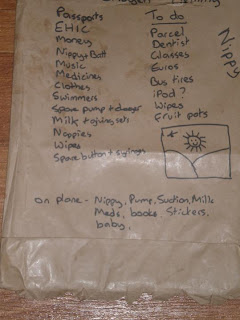 Passports
EHIC
Money
Nippy + Batt
Music
Medicines
Clothes
Swimmers
Spare pump + charger
Milk + giving sets
Nappies
Wipes
Spare button + syringes
To do
Parcel
Dentist
Glasses
Euros
Bus times
iPod ?
Wipes
Fruit pots
Nippy
on plane - Nippy, Pump, Suction, Milk
Meds, books. Stickers.
baby,